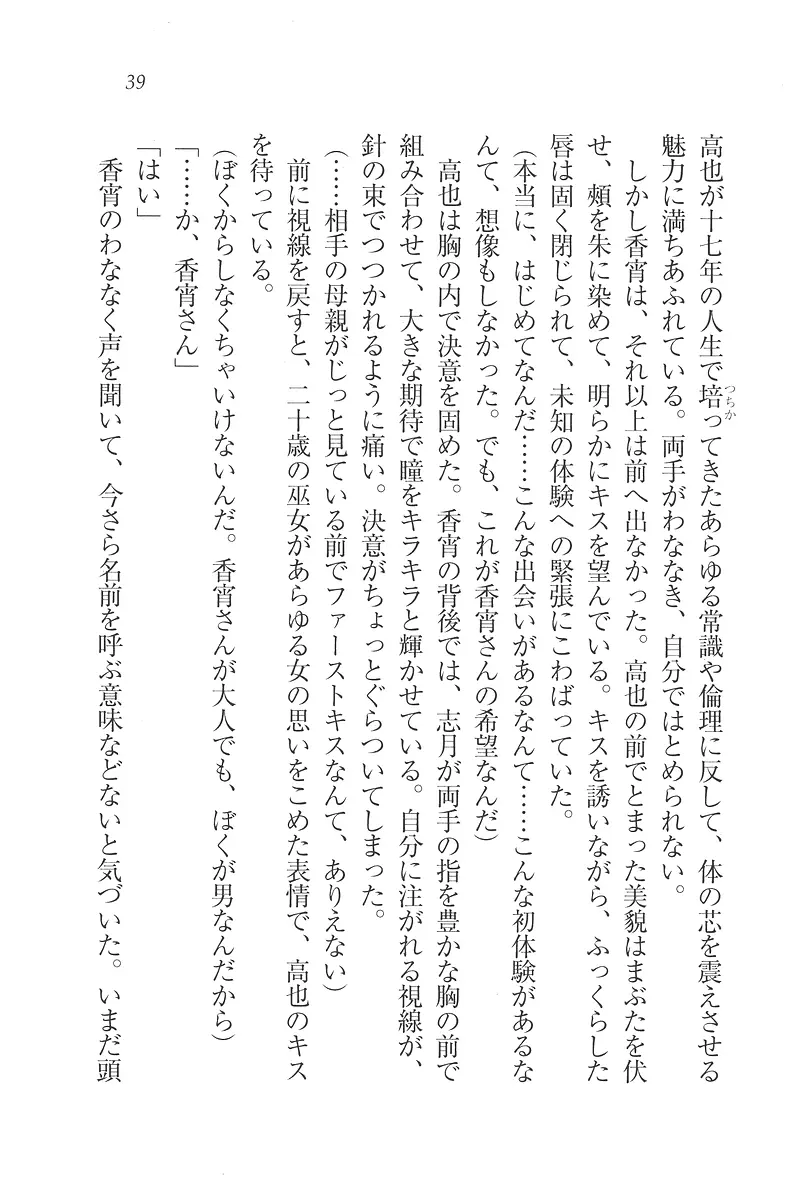 39
高也が十七年の人生で培ってきたあらゆる常識や倫理に反して、体の芯を震えさせる
つちか
魅力に満ちあふれている。両手がわななき、自分ではとめられない。
しかし香宵は、それ以上は前へ出なかった。高也の前でとまった美貌はまぶたを伏
せ、頰を朱に染めて、明らかにキスを望んでいる。キスを誘いながら、ふっくらした
唇は固く閉じられて、未知の体験への緊張にこわばっていた。
(本当に、はじめてなんだ……こんな出会いがあるなんて……こんな初体験があるな
んて、想像もしなかった。でも、これが香宵さんの希望なんだ)
高也は胸の内で決意を固めた。香宵の背後では、志月が両手の指を豊かな胸の前で
組み合わせて、大きな期待で瞳をキラキラと輝かせている。自分に注がれる視線が、
針の束でつつかれるように痛い。決意がちょっとぐらついてしまった。
(……相手の母親がじっと見ている前でファーストキスなんて、ありえない)
前に視線を戻すと、二十歳の巫女があらゆる女の思いをこめた表情で、高也のキス
を待っている。
(ぼくからしなくちゃいけないんだ。香宵さんが大人でも、ぼくが男なんだから)
「……か、香宵さん」
「はい」
香宵のわななく声を聞いて、今さら名前を呼ぶ意味などないと気づいた。いまだ頭